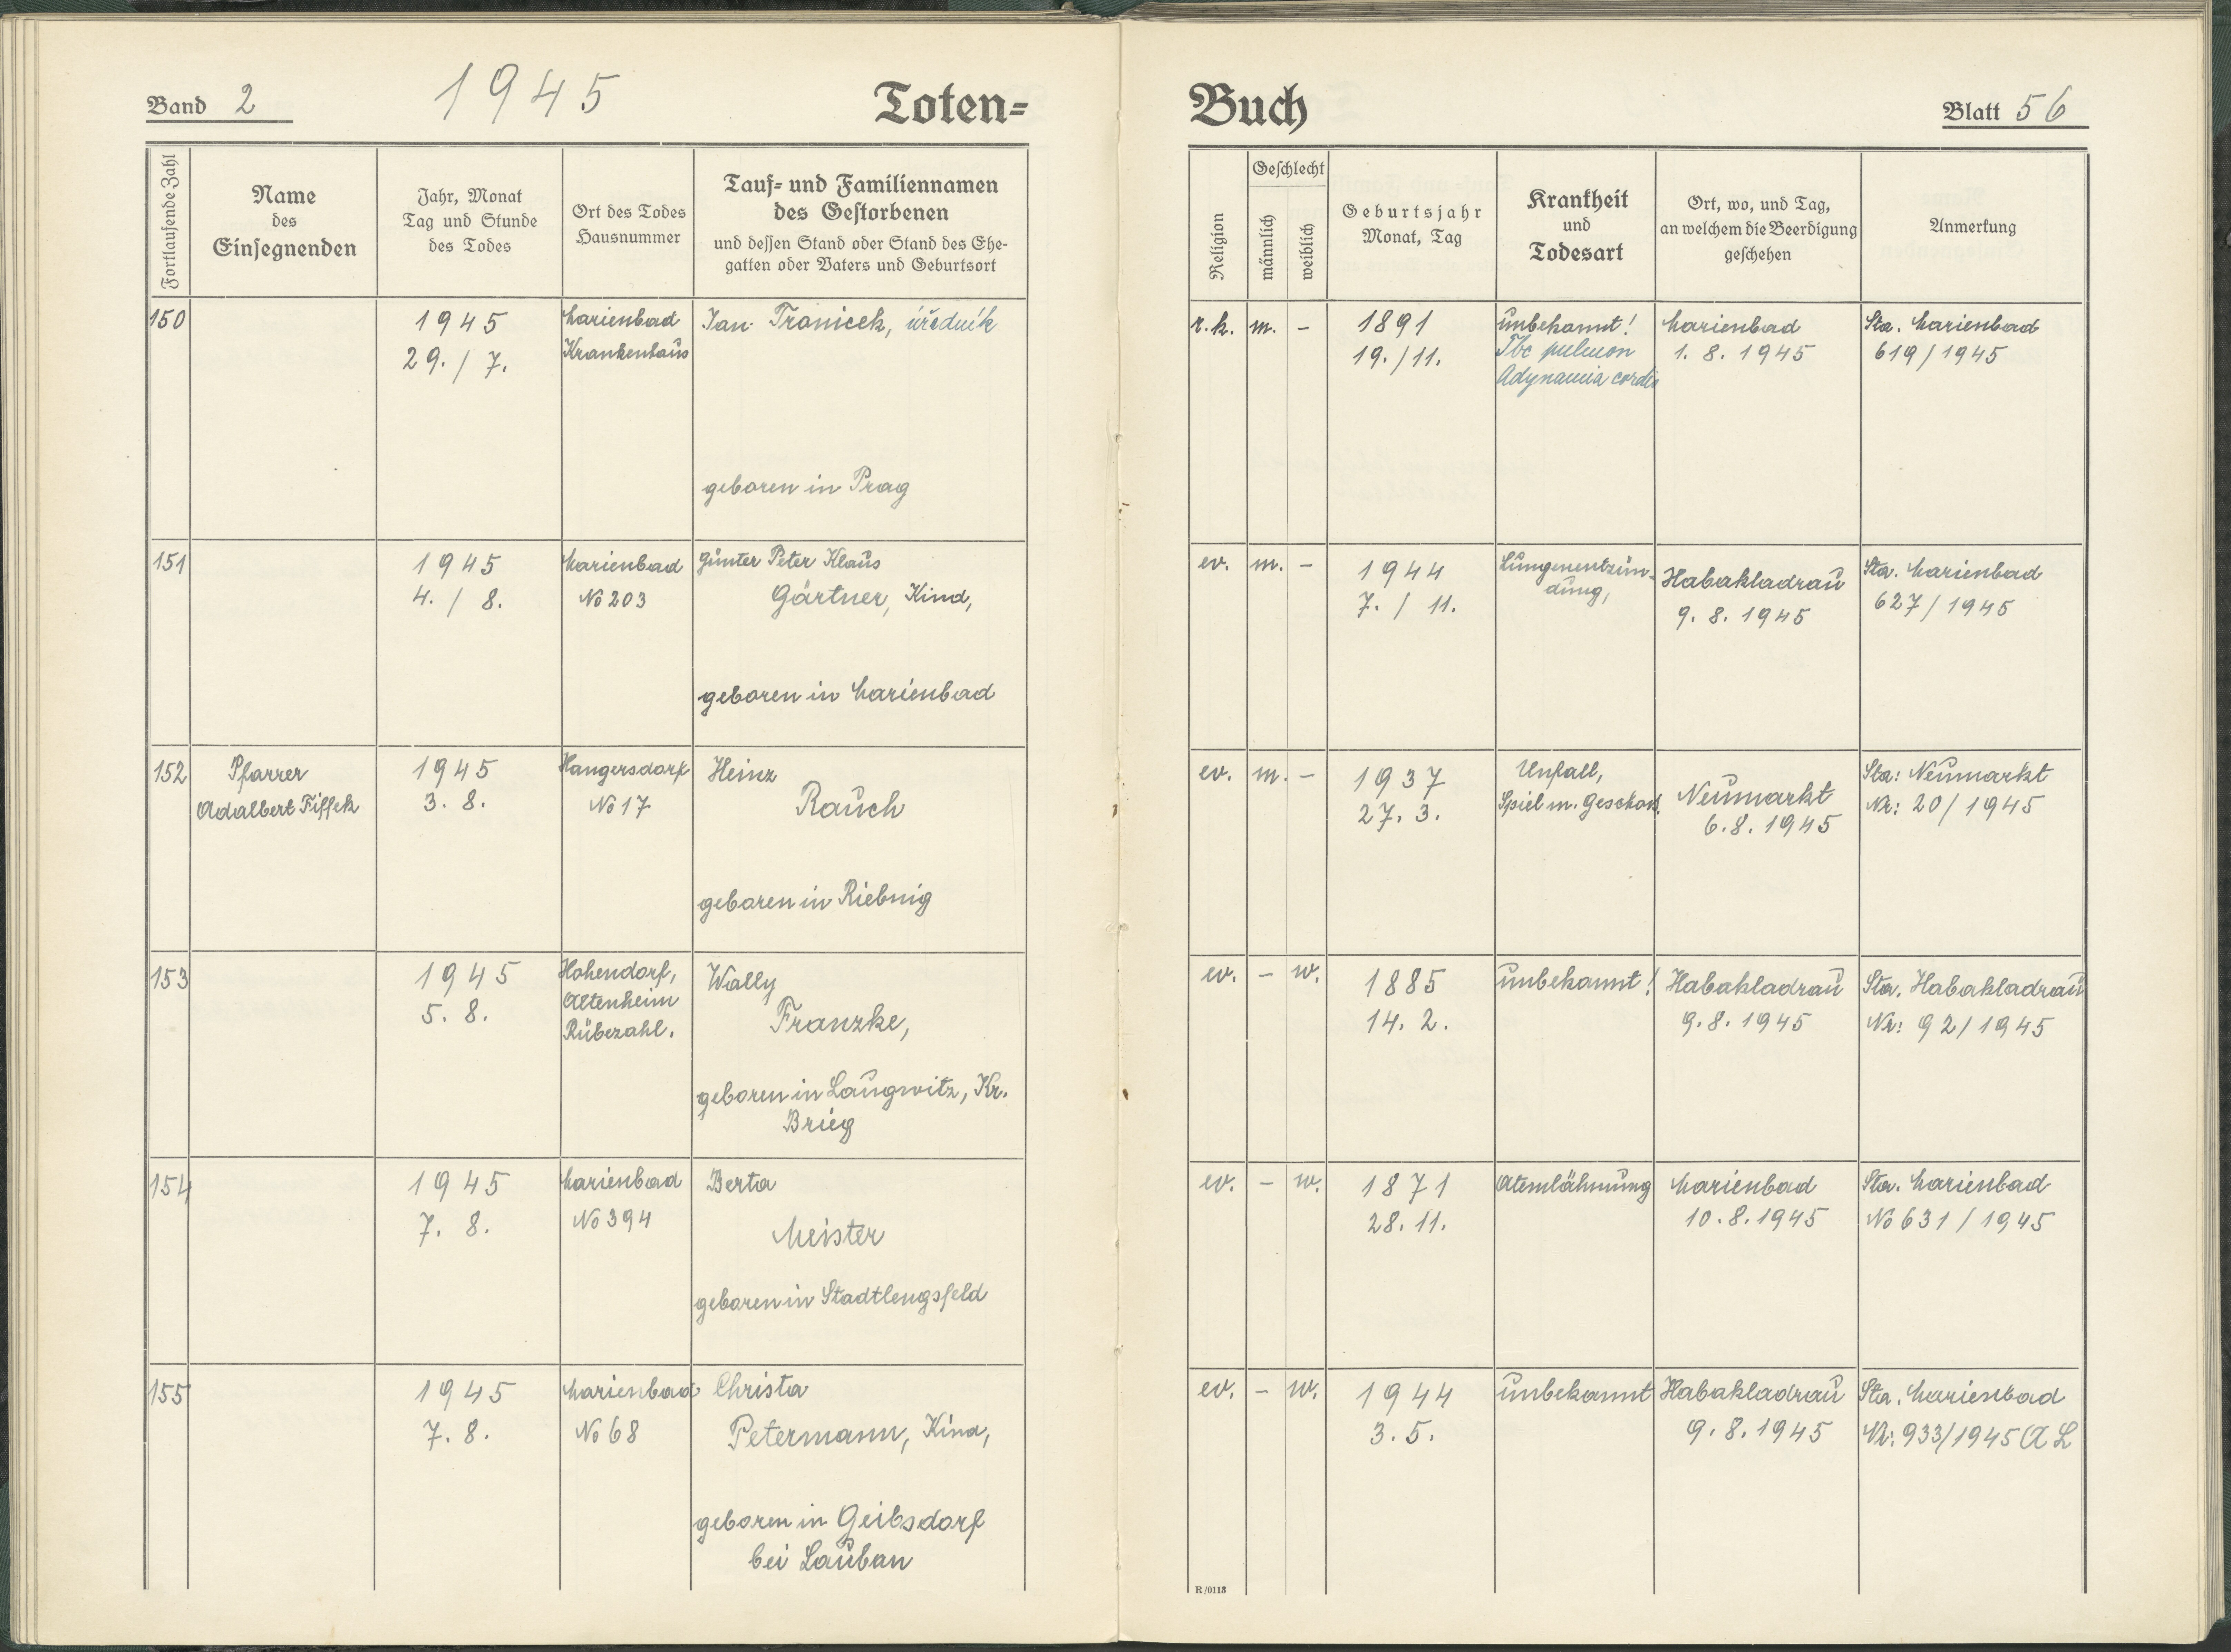 Band 2
1945
Toten-
Buch
Blatt 56
Fortlaufende Zahl
Name
des
Einsegnenden
Jahr, Monat
Tag und Stunde
des Todes
Ort des Todes
Hausnummer
Tauf- und Familiennamen
des Gestorbenen
und dessen Stand oder Stand des Ehe-
gatten oder Vaters und Geburtsort
Religion
Geschlecht
männlich
weiblich
Geburtsjahr
Monat, Tag
Krankheit
und
Todesart
Ort, wo, und Tag,
an welchem die Beerdigung
geschehen
Anmerkung
150
1945
29. / 7.
Marienbad
Krankenhaus
Jan Tranicek, úředník
geboren in Prag
r.k. m. –
1891
19. / 11.
unbekannt!
Tbc pulmon
Adynamia cordis
Marienbad
1. 8. 1945
Sta. Marienbad
619/1945
151
1945
4. / 8.
Marienbad
No 203
Günter Peter Klaus
Gärtner, Kind,
geboren in Marienbad
ev. m. –
1944
7. / 11.
Lungenentzün-
dung,
Habakladrau
9. 8. 1945
Sta. Marienbad
627/1945
152
Pfarrer
Adalbert Fissek
1945
3. 8.
Hangersdorf
No 17
Heinz
Rauch
geboren in Riebnig
ev. m. –
1937
27. 3.
Unfall,
Spiel m. Geschoß.
Neumarkt
6. 8. 1945
Sta: Neumarkt
Nr: 20/1945
153
1945
5. 8.
Hohendorf,
Altenheim
Rübezahl.
Wally
Franzke,
geboren in Laugwitz, Kr.
Brieg
ev. – w.
1885
14. 2.
unbekannt!
Habakladrau
9. 8. 1945
Sta. Habakladrau
Nr: 92/1945
154
1945
7. 8.
Marienbad
No 394
Berta
Meister
geboren in Stadtlengsfeld
ev. – w.
1871
28. 11.
Atemlähmung
Marienbad
10. 8. 1945
Sta. Marienbad
No 631/1945
155
1945
7. 8.
Marienbad
No 68
Christa
Petermann, Kind,
geboren in Geibsdorf
bei Lauban
ev. – w.
1944
3. 5.
unbekannt
Habakladrau
9. 8. 1945
Sta. Marienbad
Nr: 933/1945 A L
R/0113